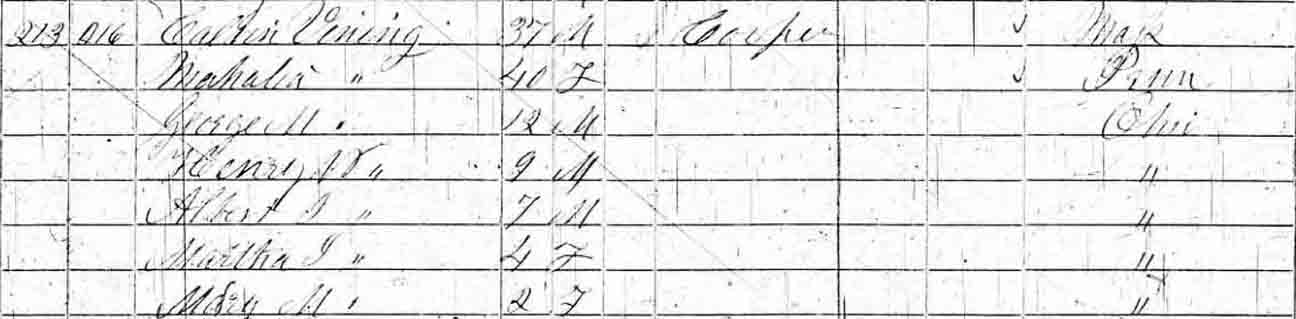 213 216 Calvin Vining 37 M Cooper Mass
Mahala " 40 F Penn
George M " 12 M Ohio
Henry W " 9 M "
Albert J " 7 M "
Martha J " 4 F "
Mary M " 2 F "